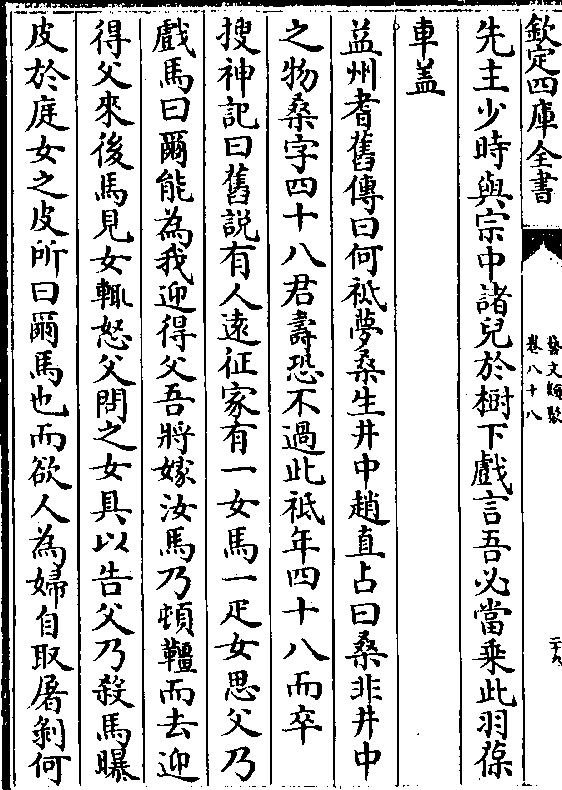 欽定四庫全書
藝文類聚
卷八十八
二十九
先主少時與宗中諸兒於樹下戲言吾必當乘此羽葆
車盖
益州耆舊傳曰何祇夢桑生井中趙直占曰桑非井中
之物桑字四十八君壽恐不過此祇年四十八而卒
搜神記曰舊說有人遠征家有一女馬一疋女思父乃
戲馬曰爾能為我迎得父吾將嫁汝馬乃頓韁而去迎
得父來後馬見女輙怒父問之女具以告父乃殺馬曝
皮於庭女之皮所曰爾馬也而欲人為婦自取屠剝何